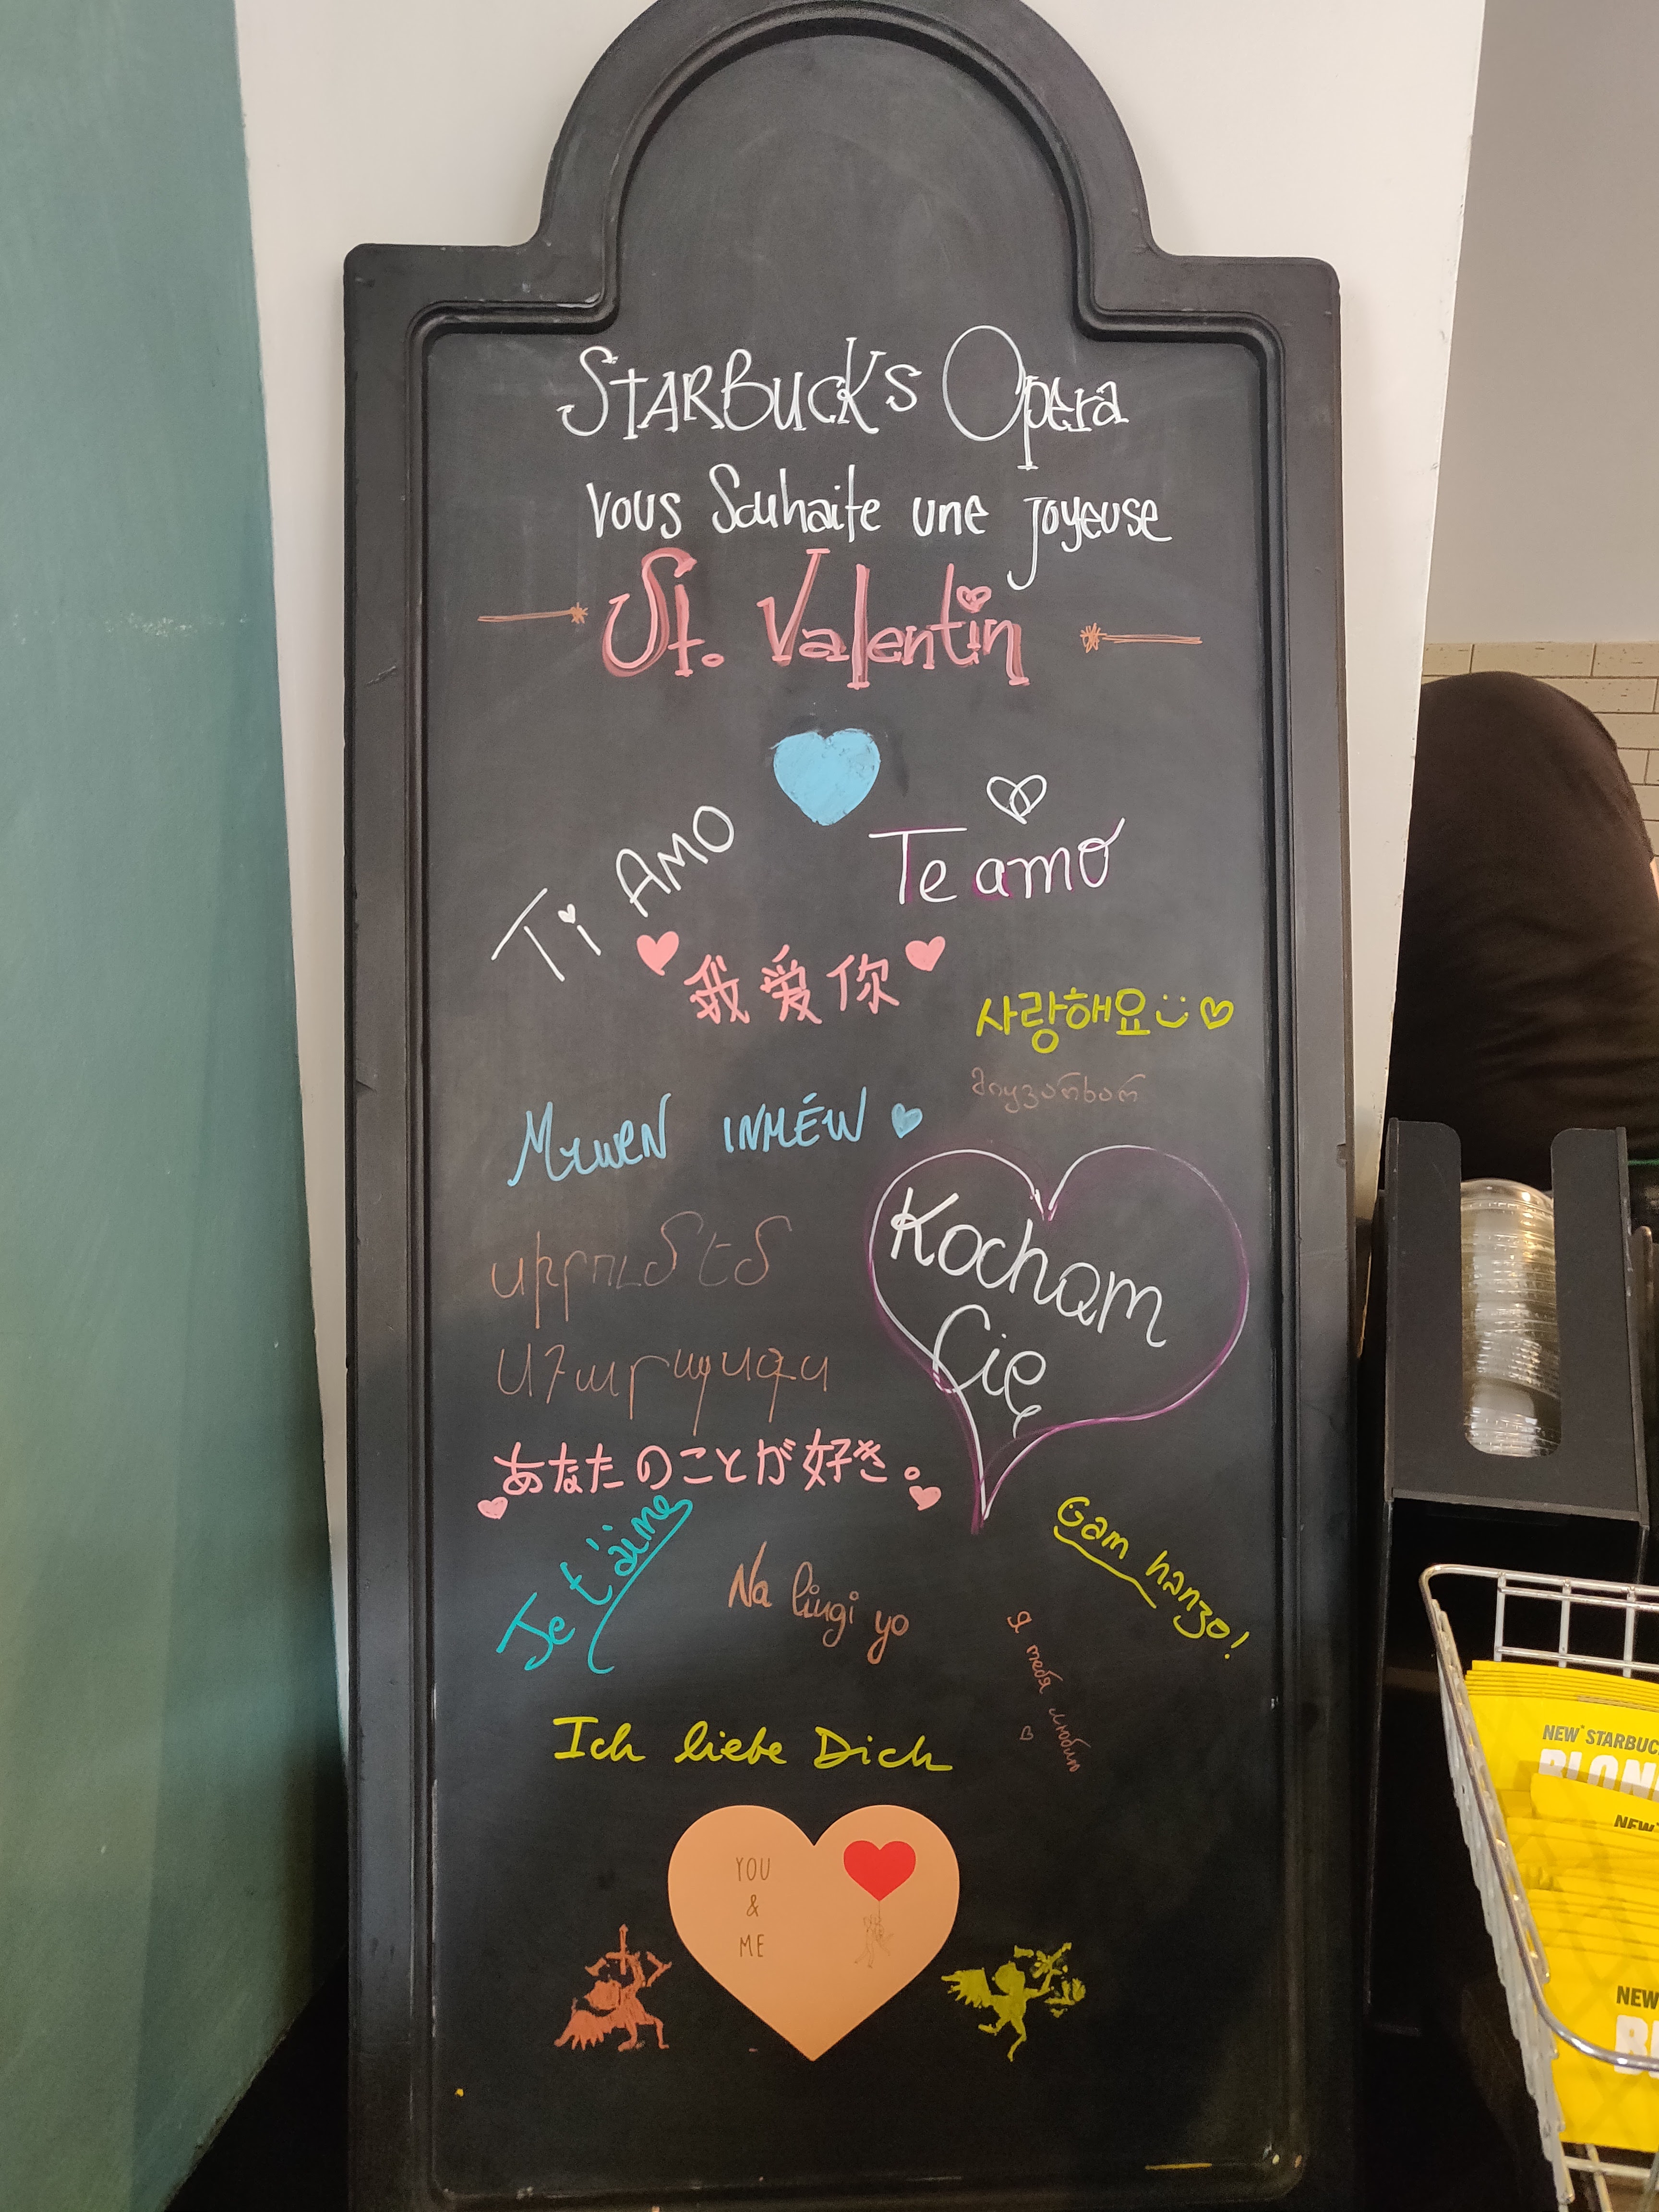 STARBUCKS Opera
vous Souhaite une joyeuse
St. Valentin
Ti AMO
Te amo
我爱你
사랑해요
მიყვარხარ
INMÉW
Kocham
Cię
あなたのことが好き。
Je t'aime
Na lingi yo
Gam hanzo!
Я тебя люблю
Ich liebe Dich
YOU
&
ME
NEW STARBUC
BLON
NEW
NEW